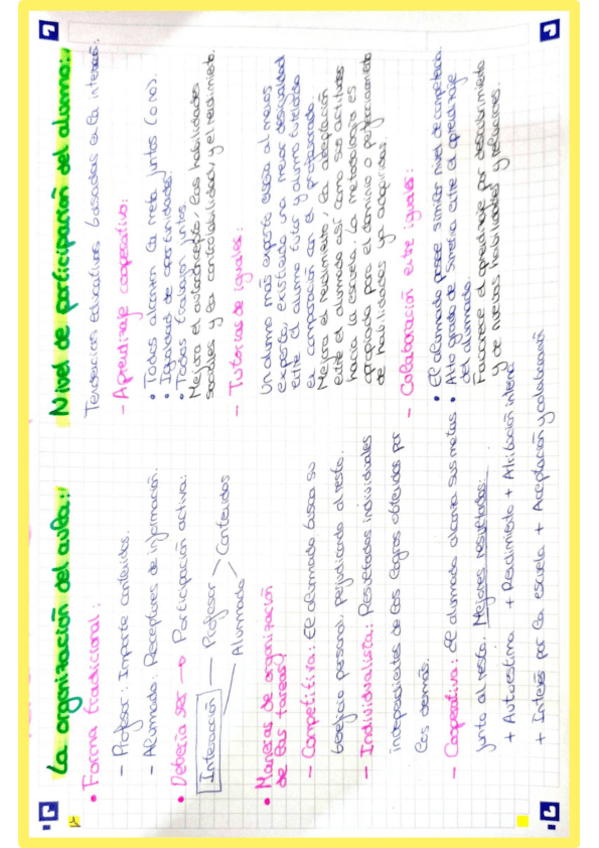 La organización del aula:
• Forma tradicional:
- Profesor: Imparte contenidos.
- Alumnado: Receptores de información.
• Debería ser → Participación activa:
Interacción — Profesor > Contenidos
Alumnado
• Maneras de organización
de las tareas:
- Competitiva: El alumnado busca su
beneficio personal, perjudicando al resto.
- Individualista: Resultados individuales
independientes de los logros obtenidos por
los demás.
- Cooperativa: el alumnado alcanza sus metas
junto al resto. Mejores resultados:
+ Autoestima + Rendimiento + Atribución interna
+ Interés por la escuela + Aceptación y colaboración
Nivel de participación del alumno:
Tendencias educativas basadas en la interacc:
- Aprendizaje cooperativo:
• Todos alcanzan la meta juntos (o no).
• Igualdad de oportunidades.
• Todos trabajan juntos.
Mejora el autoconcepto, las habilidades
sociales y la controlabilidad, y el rendimiento.
- Tutorías de iguales:
Un alumno más experto enseña al menos
experto, existiendo una menor desigualdad
entre el alumno tutor y alumno tutelado
en comparación con el profesorado.
Mejora el rendimiento, la aceptación
entre el alumnado así como sus actitudes
hacia la escuela. La metodología es
apropiada para el dominio o perfeccionamiento
de habilidades ya adquiridas.
- Colaboración entre iguales:
• El alumnado posee similar nivel de competencia.
• Alto grado de simetría entre el aprendizaje
del alumnado.
Favorece el aprendizaje por descubrimiento
y de nuevas habilidades y relaciones.